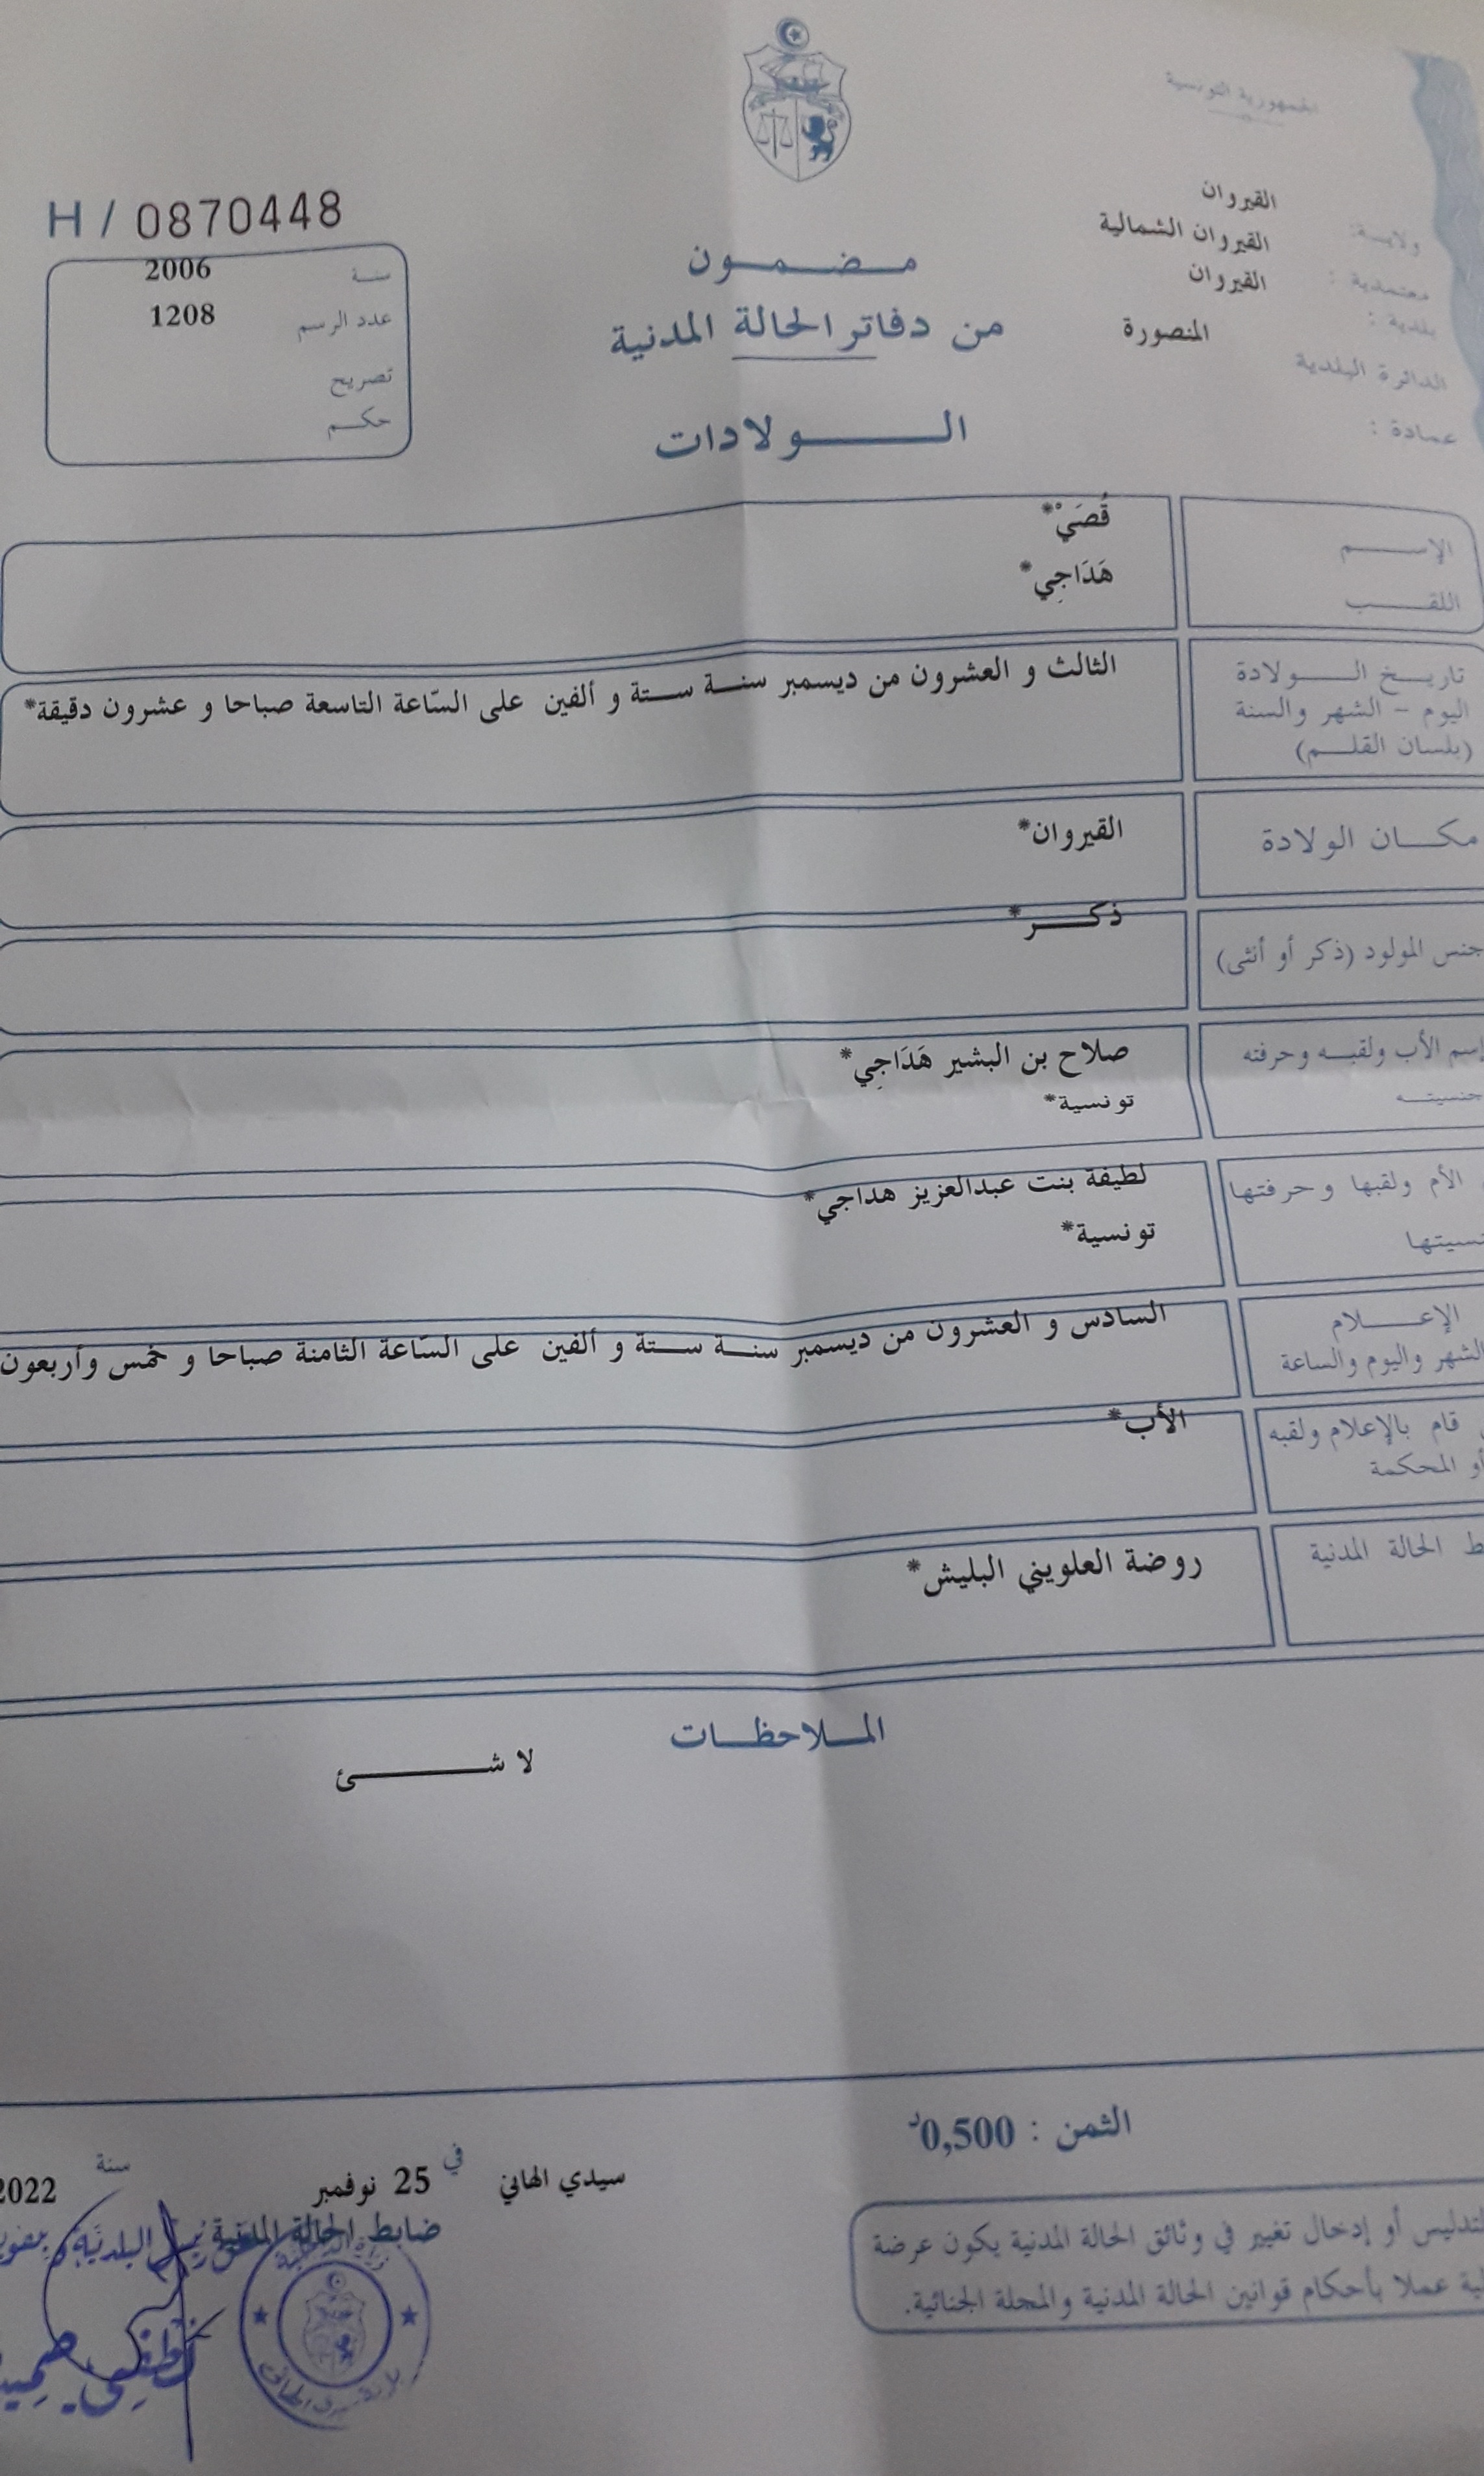 الجمهورية التونسية
H / 0870448
ولاية: القيروان
معتمدية : القيروان الشمالية
بلدية : القيروان
الدائرة البلدية المنصورة
عمادة :
سنة 2006
عدد الرسم 1208
تصريح
حكم
مضمون
من دفاتر الحالة المدنية
الولادات
الإسم قُصَيْ*
اللقب هَدَاجِي*
تاريخ الولادة
اليوم - الشهر والسنة
(بلسان القلم)
الثالث و العشرون من ديسمبر سنة ستة و ألفين على السّاعة التاسعة صباحا و عشرون دقيقة*
مكان الولادة القيروان*
جنس المولود (ذكر أو أنثى) ذكر*
إسم الأب ولقبه وحرفته صلاح بن البشير هَدَاجِي*
جنسيته تونسية*
الأم ولقبها وحرفتها لطيفة بنت عبدالعزيز هداجي*
تونسية*
الإعلام
الشهر واليوم والساعة
السادس و العشرون من ديسمبر سنة ستة و ألفين على السّاعة الثامنة صباحا و خمس وأربعون
قام بالإعلام ولقبه الأب*
أو المحكمة
الحالة المدنية روضة العلويني البليش*
الملاحظات
لا شئ
الثمن : 0,500د
سيدي الهاني في 25 نوفمبر سنة 2022
ضابط الحالة المدنية
التدليس أو إدخال تغيير في وثائق الحالة المدنية يكون عرضة
عملا بأحكام قوانين الحالة المدنية والمجلة الجنائية.